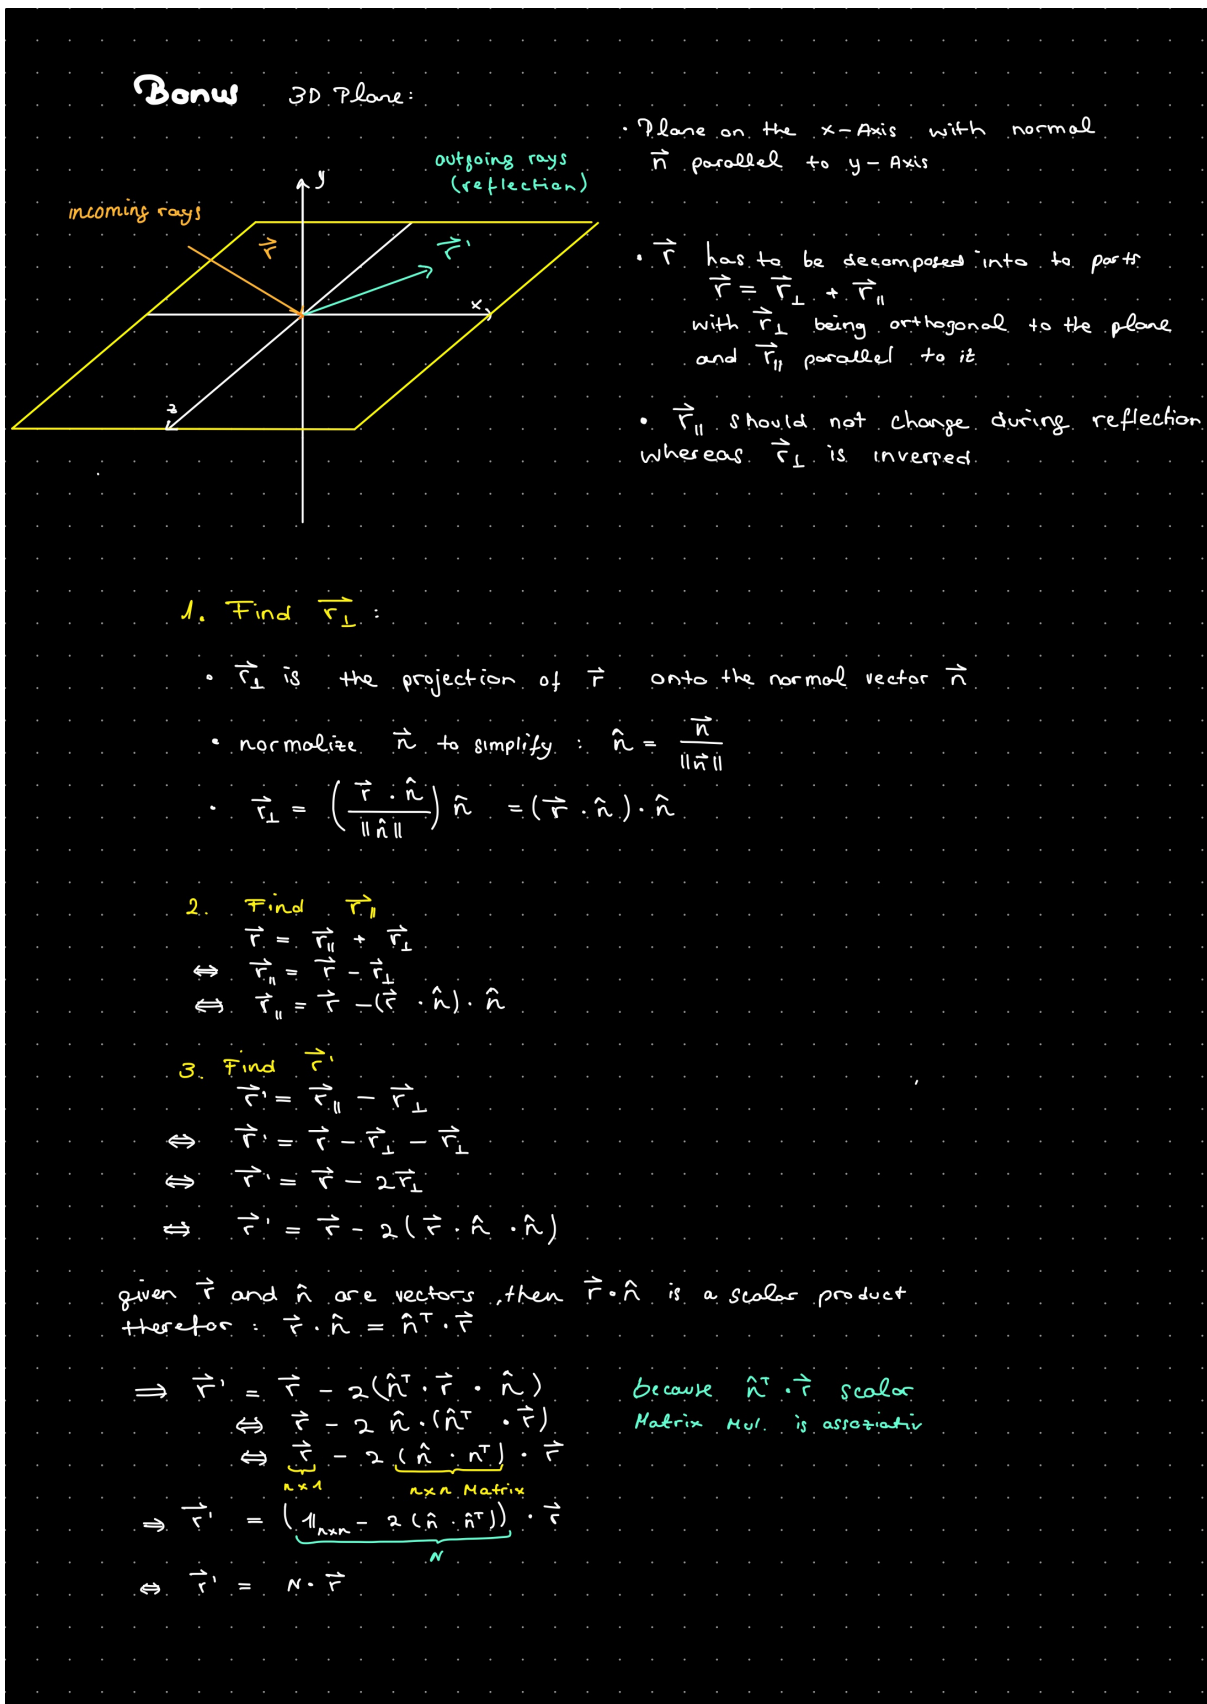 Bonus 3D Plane:
• Plane on the x-Axis with normal
n⃗ parallel to y-Axis
y
outgoing rays
(reflection)
incoming rays
r⃗
r⃗'
x
z
• r⃗ has to be decomposed into to parts
r⃗ = r⃗⊥ + r⃗∥
with r⃗⊥ being orthogonal to the plane
and r⃗∥ parallel to it
• r⃗∥ should not change during reflection
whereas r⃗⊥ is inversed
1. Find r⃗⊥ :
• r⃗⊥ is the projection of r⃗ onto the normal vector n⃗
• normalize n⃗ to simplify : n̂ = n⃗ / ||n⃗||
• r⃗⊥ = (r⃗ · n̂ / ||n̂||) n̂ = (r⃗ · n̂) · n̂
2. Find r⃗∥
r⃗ = r⃗∥ + r⃗⊥
⇔ r⃗∥ = r⃗ - r⃗⊥
⇔ r⃗∥ = r⃗ - (r⃗ · n̂) · n̂
3. Find r⃗'
r⃗' = r⃗∥ - r⃗⊥
⇔ r⃗' = r⃗ - r⃗⊥ - r⃗⊥
⇔ r⃗' = r⃗ - 2r⃗⊥
⇔ r⃗' = r⃗ - 2(r⃗ · n̂ · n̂)
given r⃗ and n̂ are vectors, then r⃗ · n̂ is a scalar product
therefor : r⃗ · n̂ = n̂ᵀ · r⃗
⇒ r⃗' = r⃗ - 2(n̂ᵀ · r⃗ · n̂) because n̂ᵀ · r⃗ scalar
⇔ r⃗ - 2 n̂ · (n̂ᵀ · r⃗) Matrix Mul. is assoziativ
⇔ r⃗ - 2 (n̂ · nᵀ) · r⃗
n×1 n×n Matrix
⇒ r⃗' = (𝟙n×n - 2 (n̂ · n̂ᵀ)) · r⃗
N
⇔ r⃗' = N · r⃗